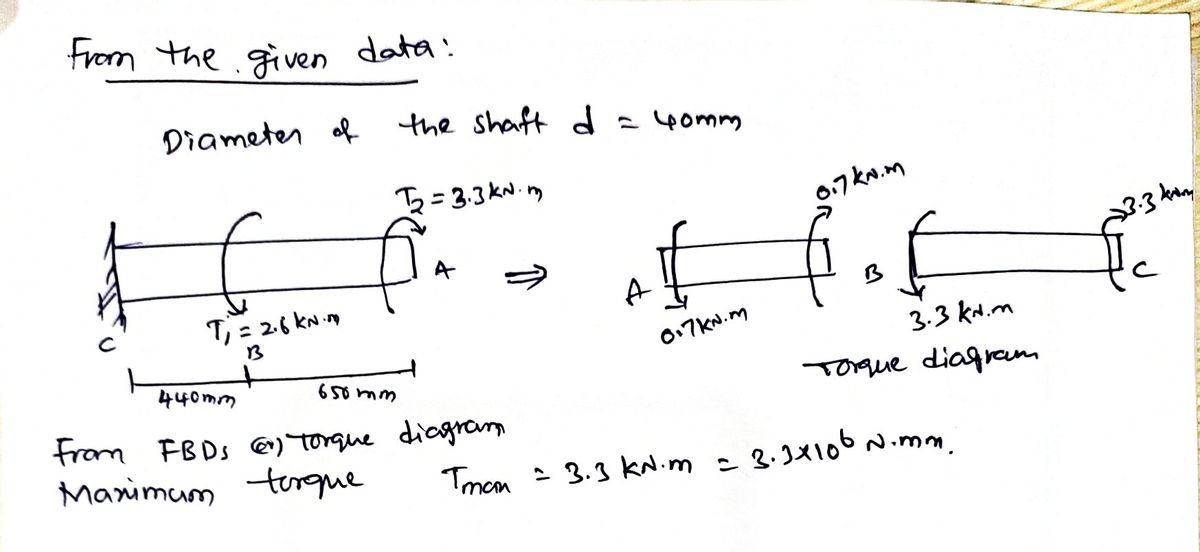 From the given data:
Diameter of the shaft d = 40mm
T2 = 3.3 kN.m
A
C
T1 = 2.6 kN.m
B
440mm
650 mm
⇒
0.7 kN.m
A
0.7 kN.m
3.3 kN.m
B
C
3.3 kN.m
Torque diagram
From FBDs (or) Torque diagram
Maximum torque Tmax = 3.3 kN.m = 3.3x10^6 N.mm.